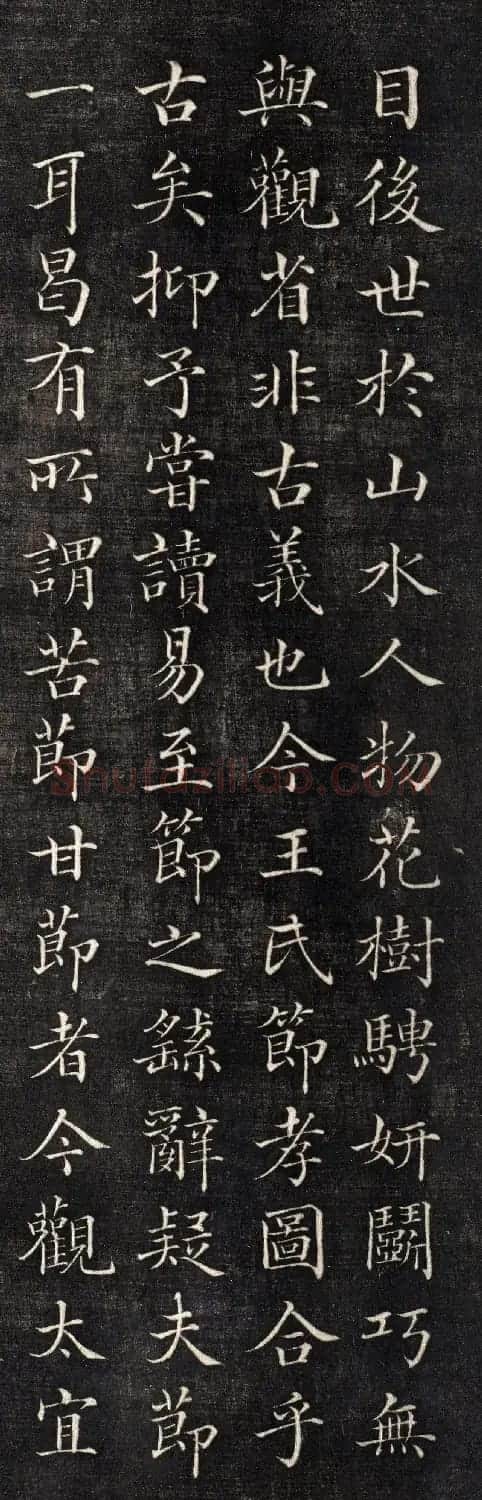 目後世於山水人物花樹騁妍鬭巧無
與觀省非古義也今王氏節孝圖合乎
古矣抑予嘗讀易至節之繇辭疑夫節
一耳曷有所謂苦節甘節者今觀太宜
shufaziliao.COM